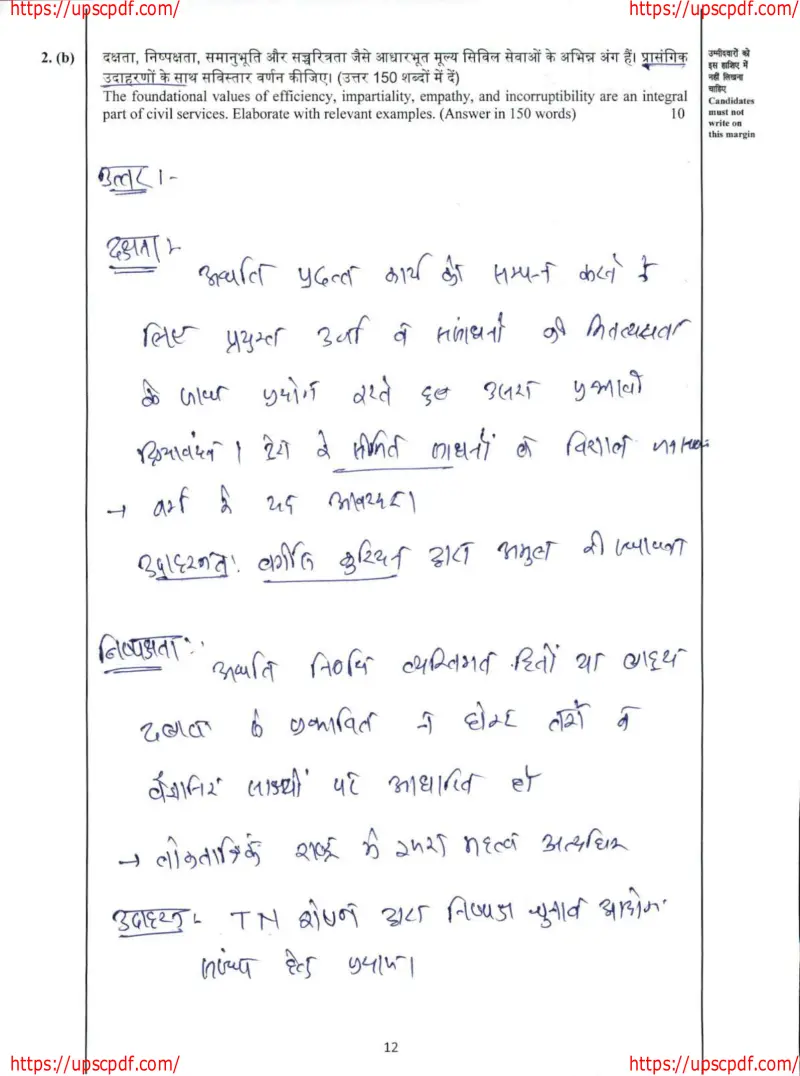 https://upscpdf.com/ https://upscpdf.com/
2. (b) दक्षता, निष्पक्षता, समानुभूति और सच्चरित्रता जैसे आधारभूत मूल्य सिविल सेवाओं के अभिन्न अंग हैं। प्रासंगिक
उदाहरणों के साथ सविस्तार वर्णन कीजिए। (उत्तर 150 शब्दों में दें)
The foundational values of efficiency, impartiality, empathy, and incorruptibility are an integral
part of civil services. Elaborate with relevant examples. (Answer in 150 words) 10
उम्मीदवारों को
इस हाशिए में
नहीं लिखना
चाहिए
Candidates
must not
write on
this margin
उत्तर :-
दक्षता :-
अर्थात प्रदत्त कार्य को सम्पन्न करने के
लिए प्रयुक्त उर्जा व संसाधनों की मितव्ययता
के साथ प्रयोग करते हुए उसका प्रभावी
क्रियावयंन । देश के सीमित साधनों व विशाल
→ वर्ग में यह आवश्यक।
उदाहरनत: वर्गीज कुरियन द्वारा अमुल की स्थापना
निष्पक्षता :-
अर्थात निर्णय व्यक्तिगत हितों या बाह्य
दबाव से प्रभावित न होकर तर्कों व
वैज्ञानिक साक्ष्यों पर आधारित हो
→ लोकतान्त्रिक राष्ट्र में इसका महत्व अत्यधिक
उदाहरन - TN शेषन द्वारा निष्पक्ष चुनाव आयोग
हेतु प्रयास।
12
https://upscpdf.com/ https://upscpdf.com/